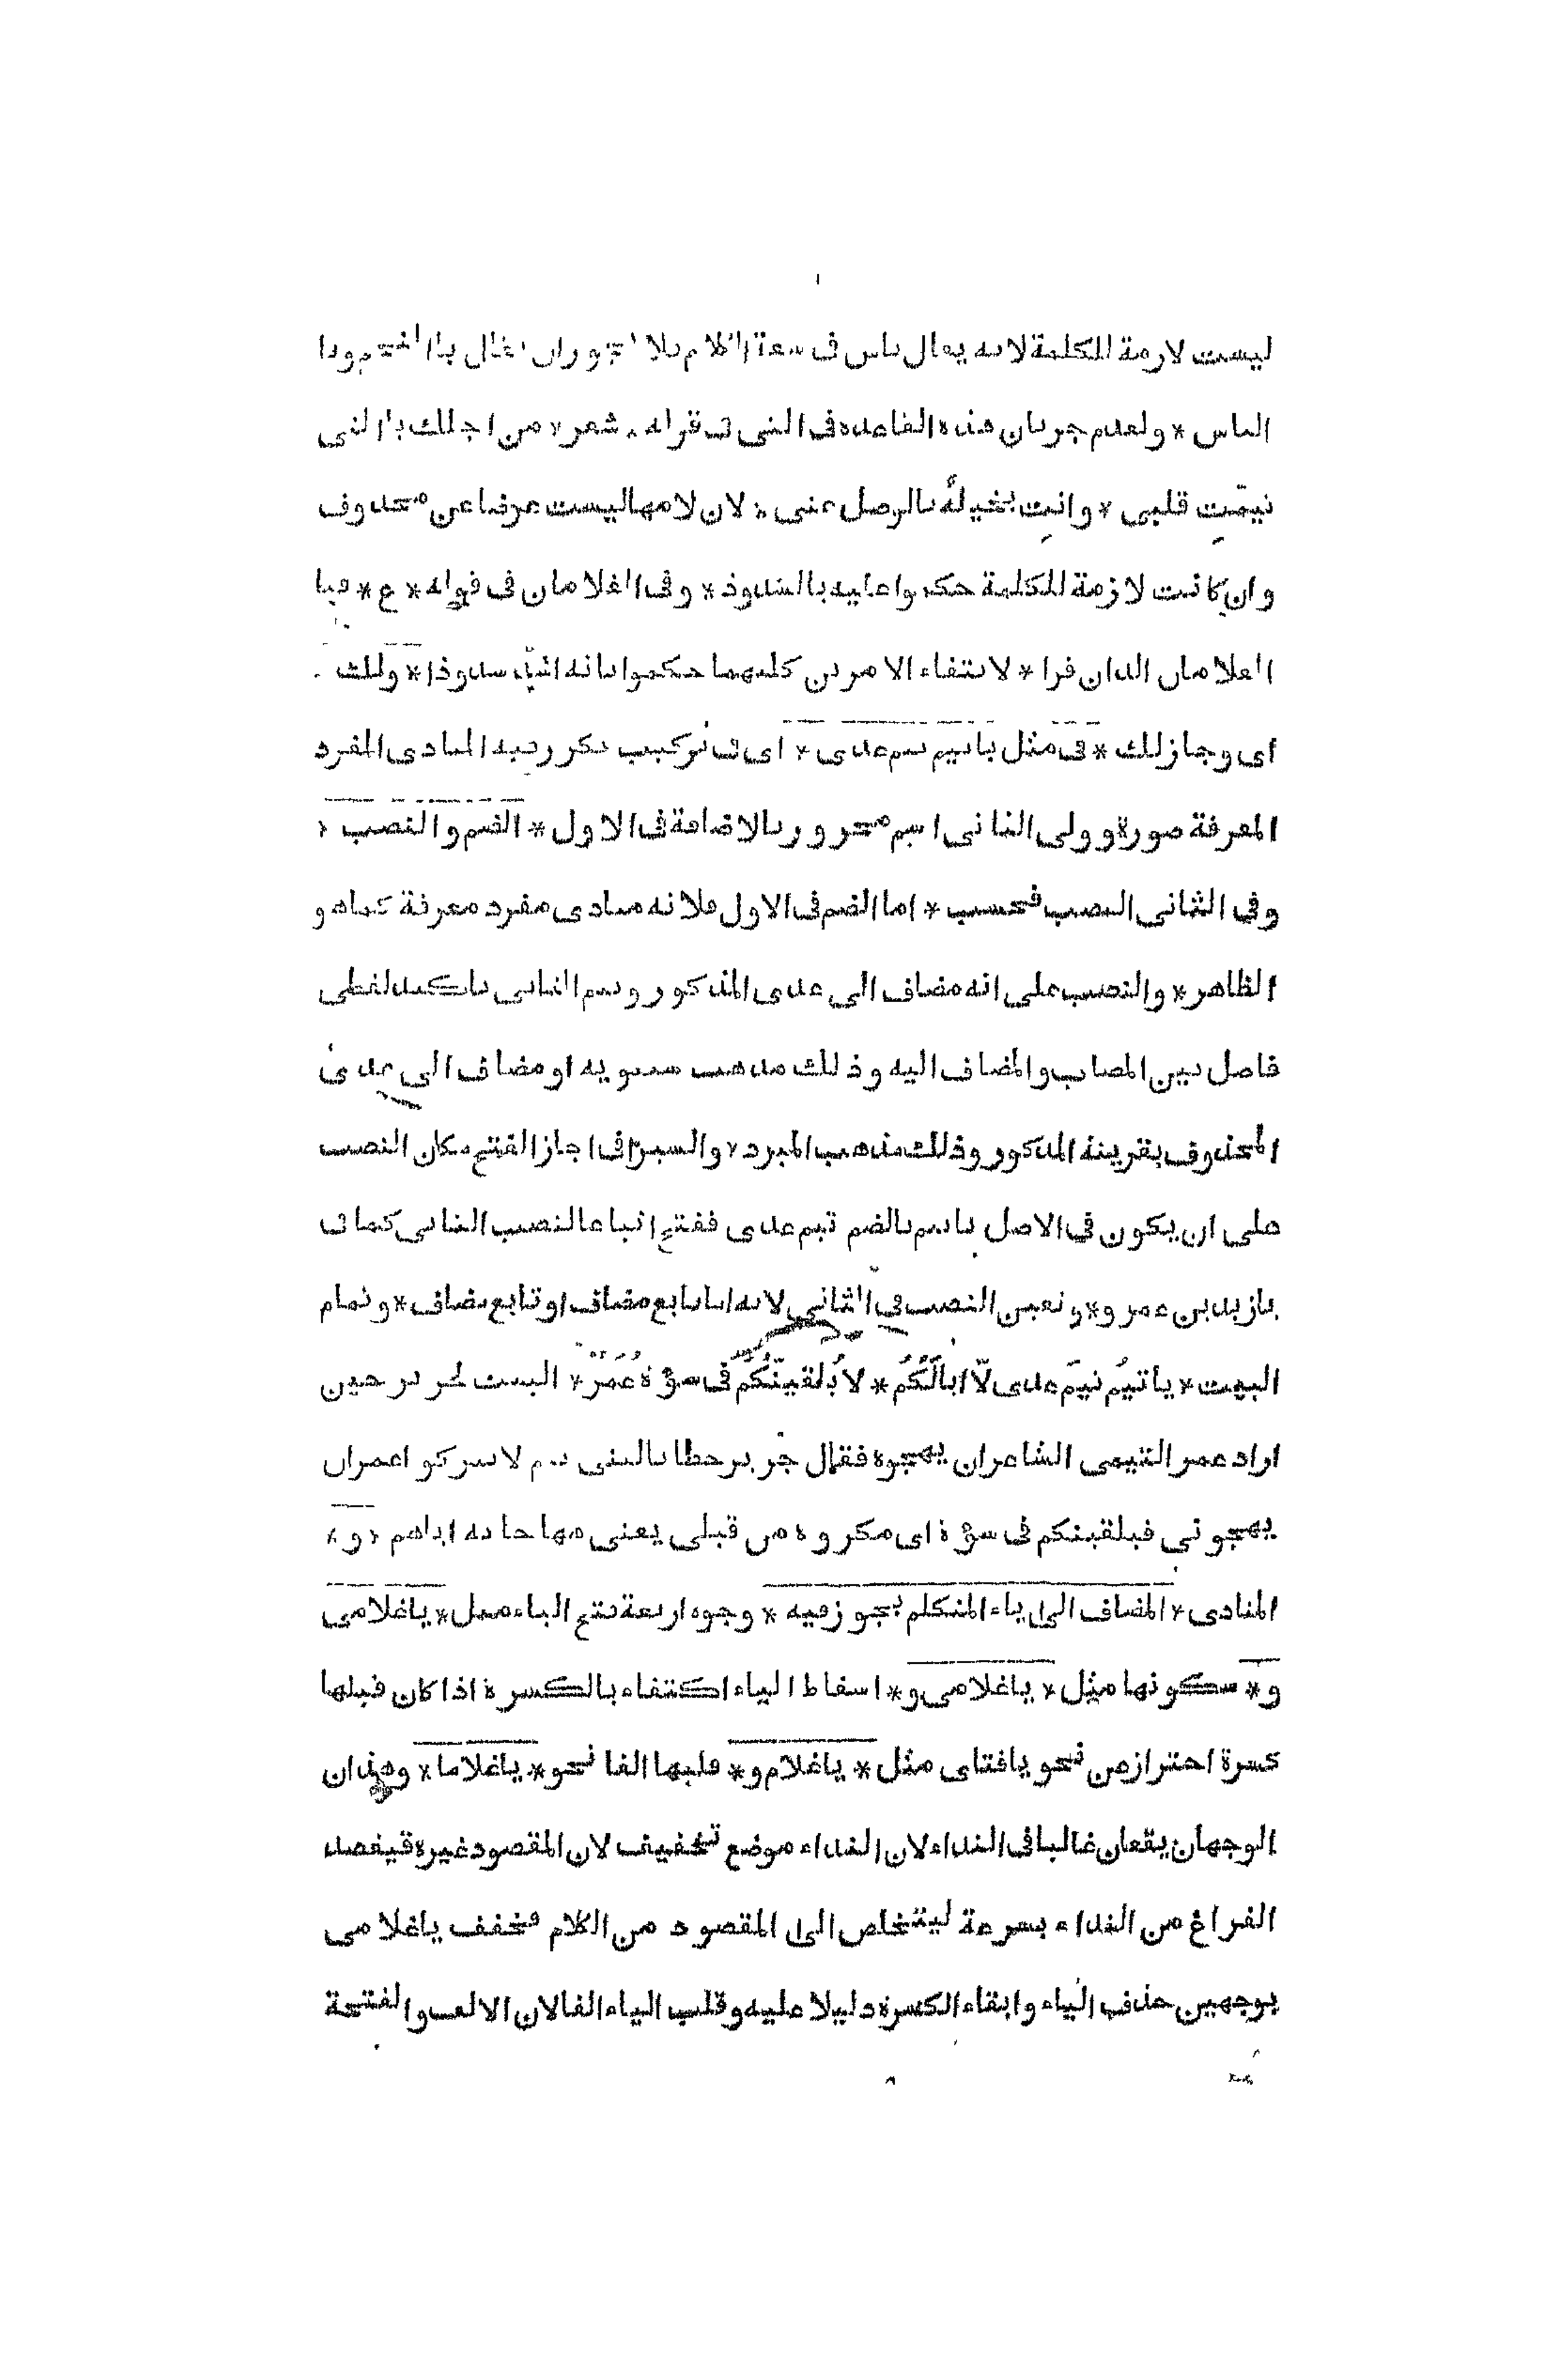 ليست لازمة للكلمة لانه يقال ناس فى سعة الكلام فلا يجوز ان يقال يا النجم ويا
الناس * ولعدم جريان هذه القاعدة فى التى فى قوله * شعر * من اجلك يا التى
تيّمت قلبى * وانت بخيلةٌ بالوصل عنى * لان لامها ليست عوضا عن محذوف
وان كانت لازمة للكلمة حكموا عليه بالشذوذ * وفى الغلامان فى قوله * ع * فيا
الغلامان اللذان فرا * لانتفاء الامرين كليهما حكموا بانه اشدّ شذوذا * ولك
اى وجاز لك * فى مثل يا تيم تيم عدى * اى فى تركيب تكرر فيه المنادى المفرد
المعرفة صورة وولى الثانى اسم مجرور بالاضافة فى الاول * الضم والنصب *
وفى الثانى النصب فحسب * اما الضم فى الاول فلانه منادى مفرد معرفة كما هو
الظاهر * والنصب على انه مضاف الى عدى المذكور وتيم الثانى تاكيد لفظى
فاصل بين المضاف والمضاف اليه وذلك مذهب سيبويه او مضاف الى عدى
المحذوف بقرينة المذكور وذلك مذهب المبرد * والسيرافى اجاز الفتح مكان النصب
على ان يكون فى الاصل يا تيم بالضم تيم عدى ففتح اتباعا لنصب الثانى كما فى
يا زيد بن عمرو * وتعين النصب فى الثانى لانه اما تابع مضاف او تابع مضاف * وتمام
البيت * يا تيمُ تيمَ عدى لَا ابَالَكُمُ * لا يُلقينّكُمُ فى سوْءة عُمَرْ * البيت لجرير حين
اراد عمر التيمى الشاعر ان يهجوه فقال جرير خطابا لبنى تيم لا تتركوا عمر ان
يهجونى فيلقينكم فى سوءة اى مكروه من قبلى يعنى مهاجاته اياهم * و *
المنادى * المضاف الى ياء المتكلم يجوز فيه * وجوه اربعة فتح الياء مثل * يا غلامى
و * سكونها مثل * يا غلامى و * اسقاط الياء اكتفاء بالكسرة اذا كان قبلها
كسرة احتراز عن نحو يا فتاى مثل * يا غلام و * قلبها الفا نحو * يا غلاما * وهذان
الوجهان يقعان غالبا فى النداء لان النداء موضع تخفيف لان المقصود غيره فيقصد
الفراغ من النداء بسرعة ليتخلص الى المقصود من الكلام فخفف يا غلامى
بوجهين حذف الياء وابقاء الكسرة دليلا عليه وقلب الياء الفا لان الالف والفتحة